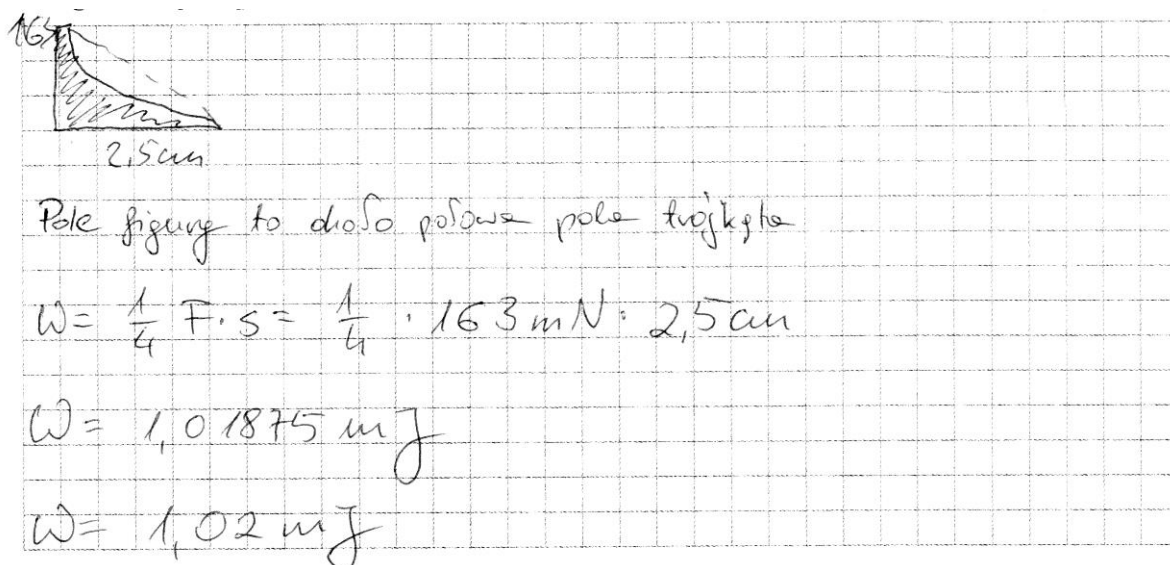 163
2,5cm
Pole figury to około połowa pola trójkąta
W = 1/4 F·s = 1/4 · 163 mN · 2,5cm
W = 1,01875 mJ
W = 1,02 mJ